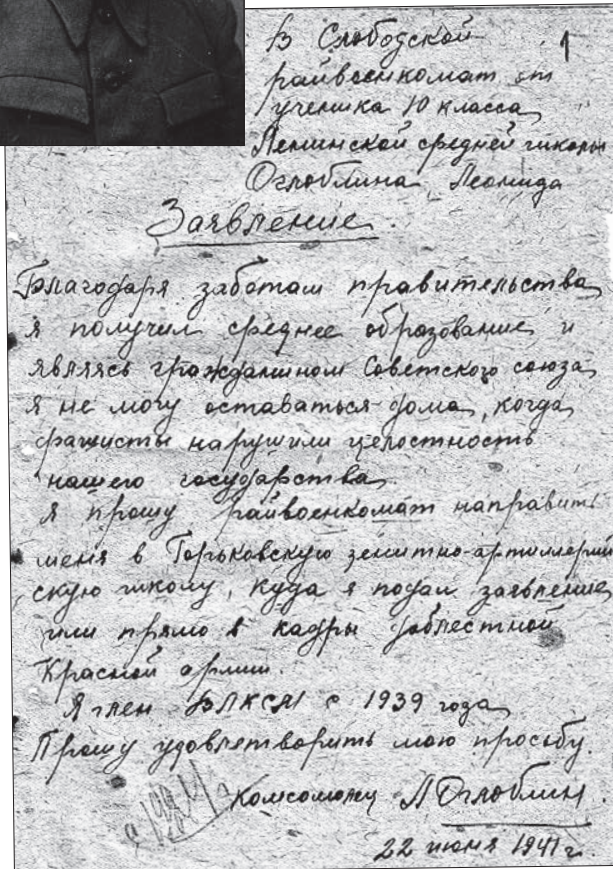 1
В Слободской
райвоенкомат от
ученика 10 класса
Ленинской средней школы
Оглоблина Леонида
Заявление.
Благодаря заботам правительства
я получил среднее образование и
являясь гражданином Советского союза
я не могу оставаться дома, когда
фашисты нарушили целостность
нашего государства.
Я прошу райвоенкомат направить
меня в Горьковскую зенитно-артиллерий
скую школу, куда я подал заявление
или прямо в кадры доблестной
Красной армии.
Я член ВЛКСМ с 1939 года
Прошу удовлетворить мою просьбу.
Комсомолец Л Оглоблин.
22 июня 1941 г.